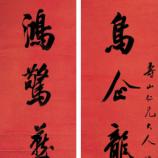 鳥企龍
壽山仁兄大人
鴻驚